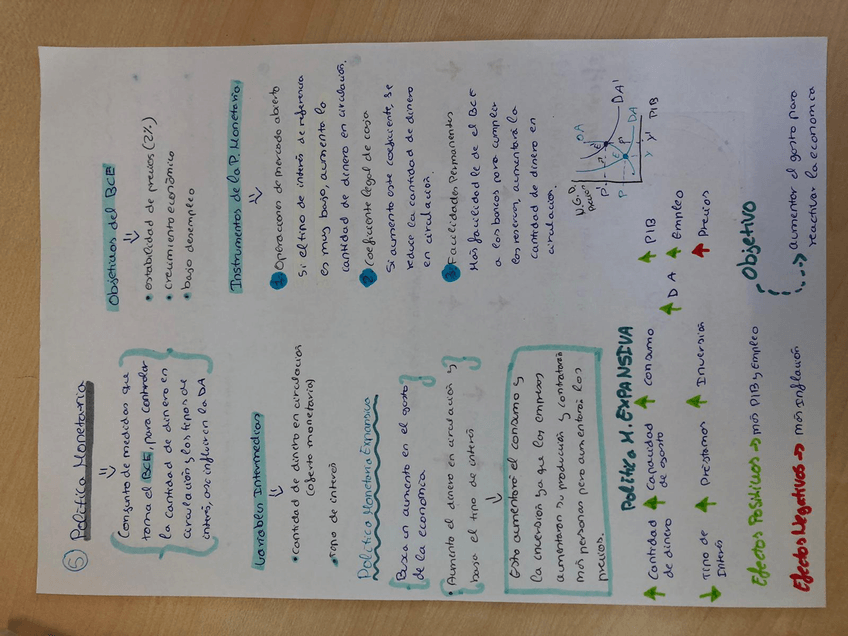 ⑤ Política Monetaria
Conjunto de medidas que
toma el BCE, para controlar
la cantidad de dinero en
circulación y los tipos de
interés, asc influir en la DA
Objetivos del BCE
• estabilidad de precios (2%)
• crecimiento económico
• bajo desempleo
Variables Intermedias
• Cantidad de dinero en circulación
(oferta monetaria)
• Tipo de interés
Instrumentos de la P. Monetaria
1 Operaciones de mercado abierto
Si el tipo de interés de referencia
es muy bajo, aumenta la
cantidad de dinero en circulación.
2 Coeficiente legal de caja
Si aumenta este coeficiente, se
reduce la cantidad de dinero
en circulación.
3 Facilidades Permanentes
Más facilidad le de el BCE
a los bancos para cumplir
las reservas, aumentará la
cantidad de dinero en
circulación.
Política Monetaria Expansiva
Busca un aumento en el gasto
de la economía.
• Aumenta el dinero en circulación y
baja el tipo de interés
Esto aumentará el consumo y
la inversión ya que las empresas
aumentarán su producción y contratará
más personas pero aumentará los
precios.
N.G.D.
Precios
P'
P
OA
E'
E
DA'
DA
Y
Y'
PIB
Política M. EXPANSIVA
↑ Cantidad de dinero ↑ Capacidad de gasto ↑ consumo
↓ Tipo de Interés ↑ Préstamos ↑ Inversión
↑ DA
↑ PIB
↑ Empleo
↑ Precios
Efectos Positivos → más PIB y Empleo
Efectos Negativos → más inflación
Objetivo
aumentar el gasto para
reactivar la economía